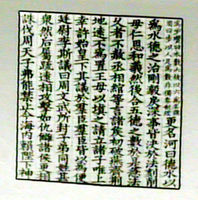 更名河曰德水以
為水德之始剛毅戾深事皆決於法刻削
毋仁恩和義然後合五德之數於是急法
久者不赦丞相綰等言諸侯初破燕齊荊
地遠不為置王毋以填之請立諸子唯上
幸許始皇下其議於羣臣羣臣皆以為便
廷尉李斯議曰周文武所封子弟同姓甚
衆然後屬疏遠相攻擊如仇讎諸侯更相
誅伐周天子弗能禁止今海內賴陛下神